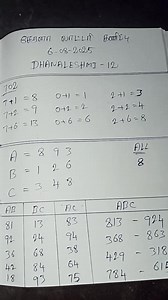 6-08-2025
DHANALESHMI - 12
702
7+1 = 8 0+1 = 1 2+1 = 3
7+2 = 9 0+2 = 2 2+2 = 4
7+6 = 13 0+6 = 6 2+6 = 8
A = 8 9 3 ALL
B = 1 2 6 8
C = 3 4 8
AB BC AC ABC
81 13 83 813 - 924
92 24 94 368 - 863
36 68 38 429 - 318
42 84 64 784 - 61
18 93 75